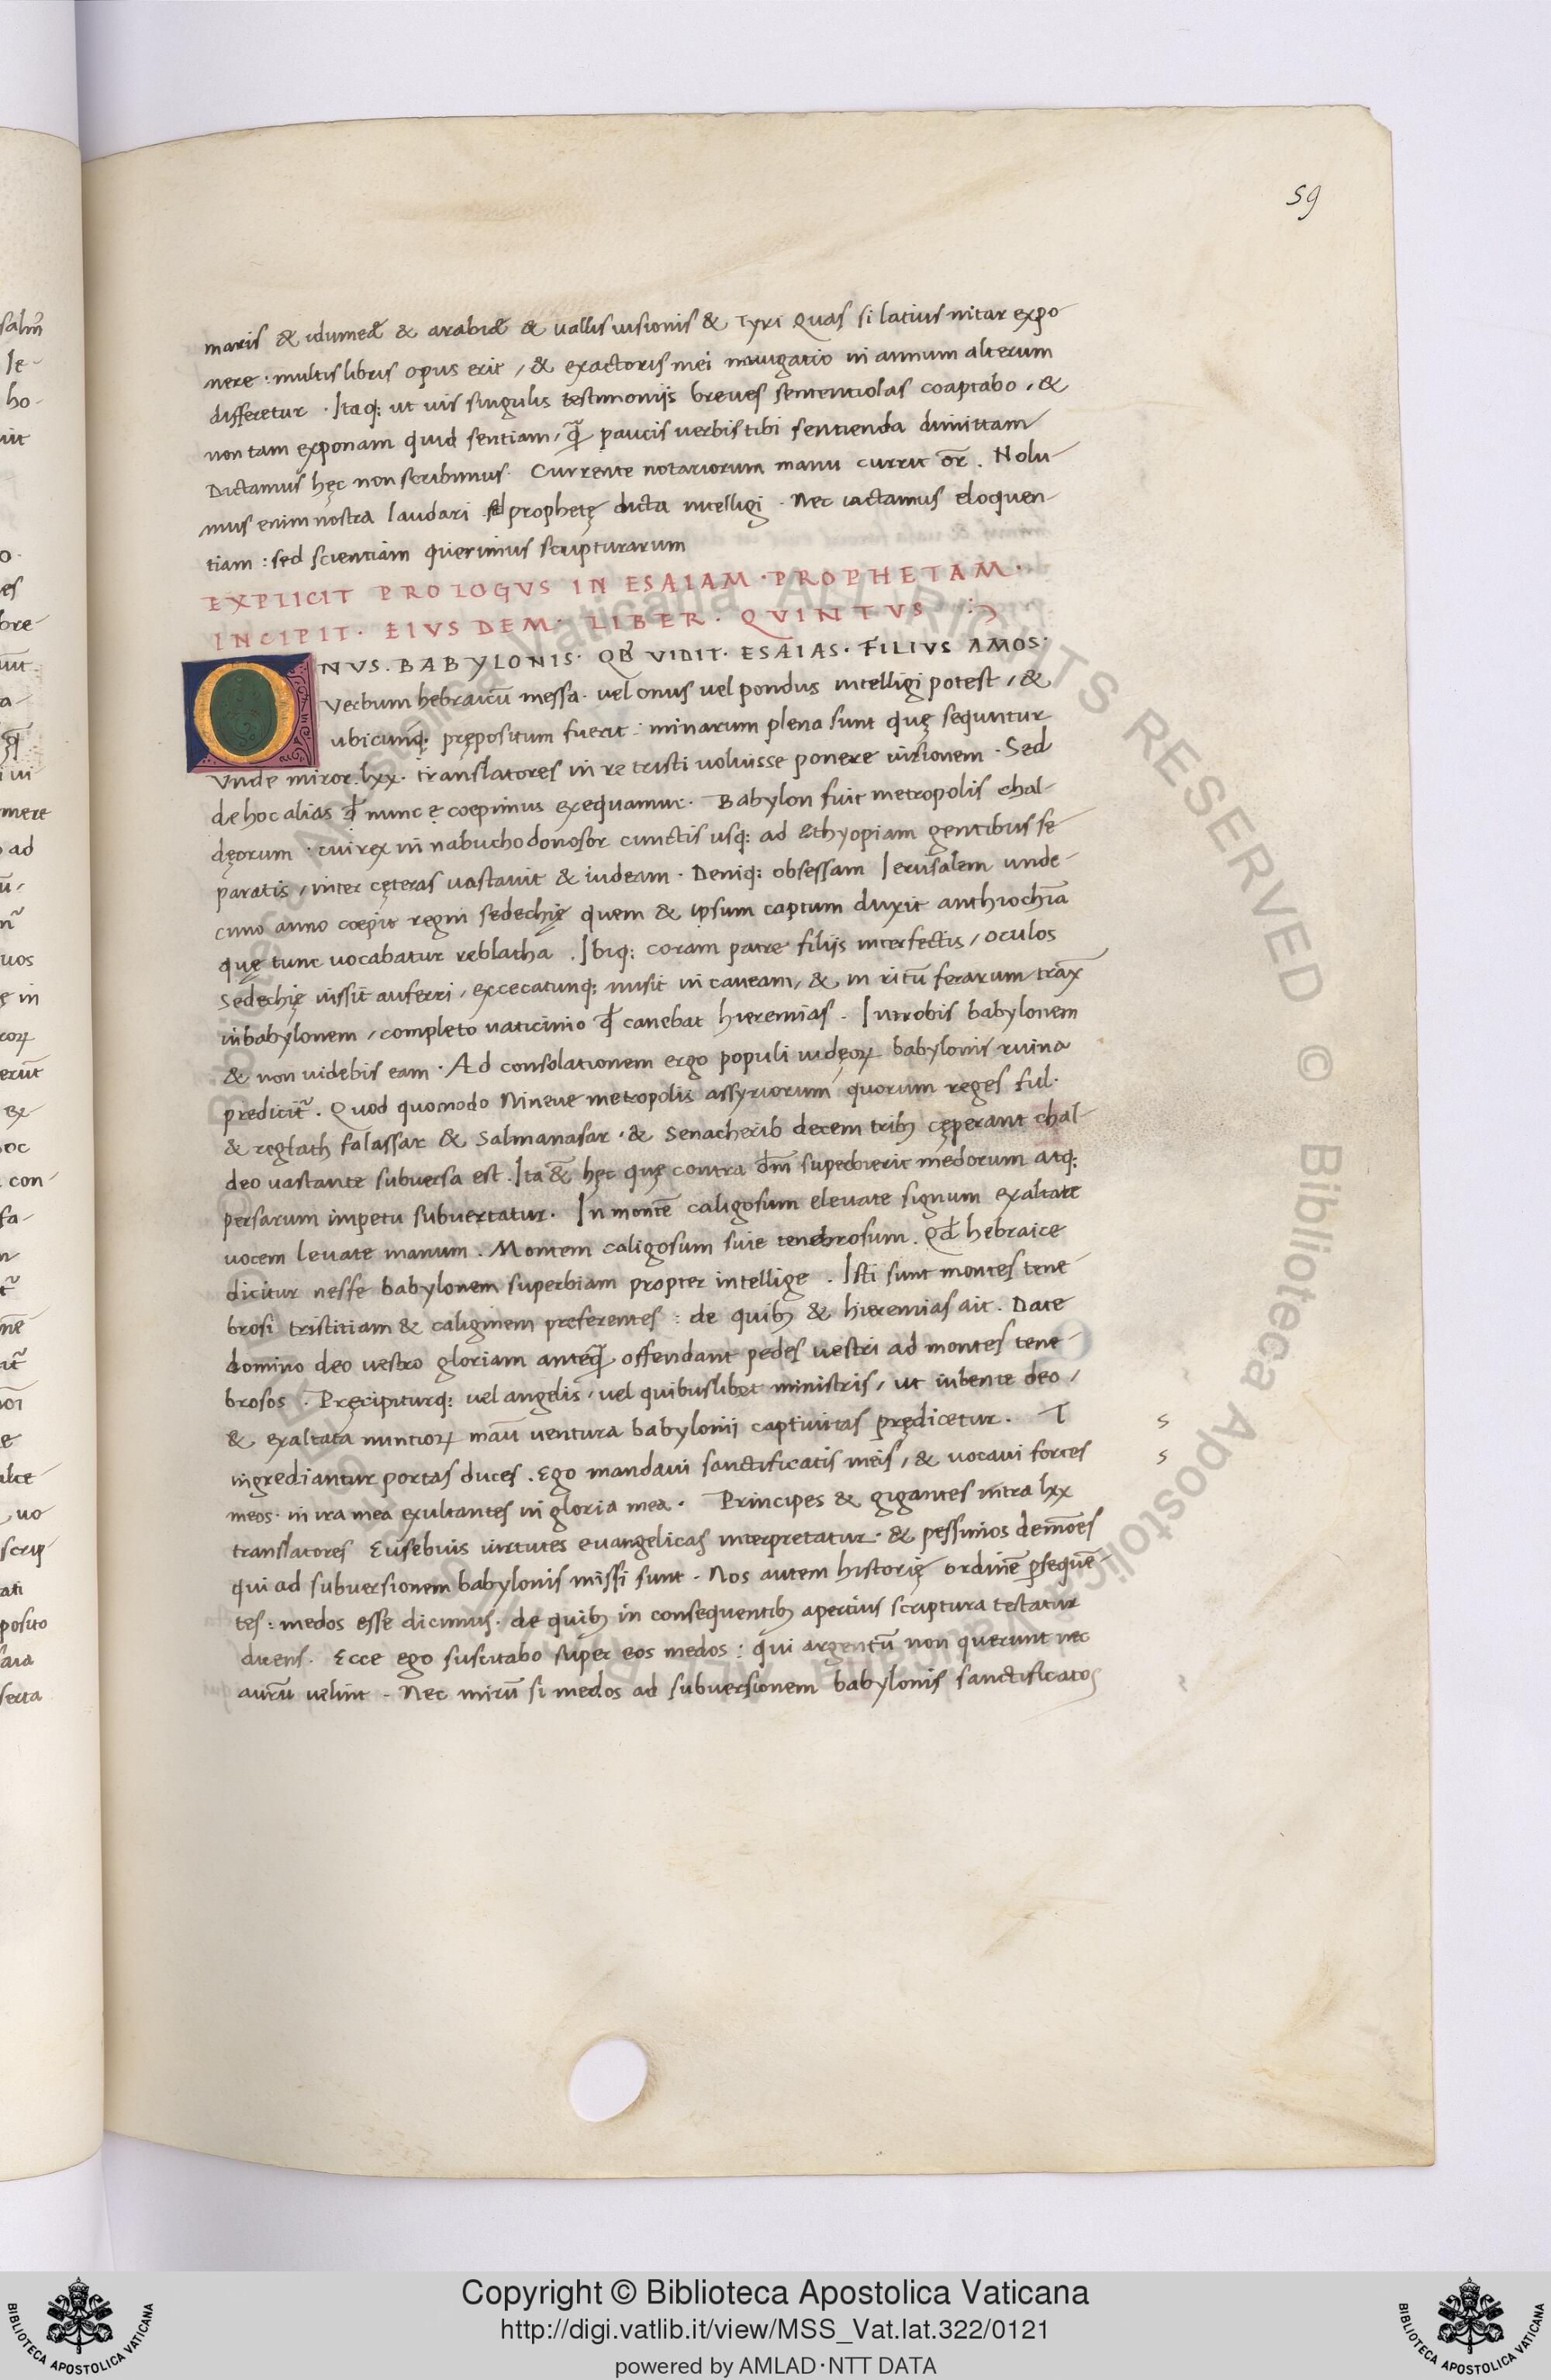 59
maris & idumeæ & arabiæ & uallis uisionis & Tyri Quas si latius nitar expo
nere : multis libris opus erit / & exactoris mei nauigatio in annum alterum
differetur . Itaq: ut uis singulis testimoniis breues sententiolas coaptabo / &
non tam exponam quid sentiam / q̄ paucis uerbis tibi sentienda dimittam
Dictamus hęc non scribimus . Currente notariorum manu currit or̄ . Nolu-
mus enim nostra laudari sed prophetę dicta intelligi . Nec iactamus eloquen-
tiam : sed scientiam querimus scripturarum
EXPLICIT PROLOGVS IN ESAIAM · PROPHETAM ·
INCIPIT · EIVSDEM · LIBER · QVINTVS
ONVS . BABYLONIS · QD̄ VIDIT · ESAIAS · FILIVS AMOS ·
Verbum hebraicū messa . uel onus uel pondus intelligi potest / &
ubicunq: prępositum fuerit : minarum plena sunt quę sequntur
Vnde miror . lxx . translatores in re tristi uoluisse ponere uisionem . Sed
de hoc alias qđ nunc ę coepimus exequamur . Babylon fuit metropolis chal-
dęorum . cui rex in nabuchodonosor cunctis usq: ad ethyopiam gentibus se
paratis / inter cęteras uastauit & iudeam . Deniq: obsessam Ierusalem unde-
cimo anno coepit regni sedechię quem & ipsum captum duxit anthiochiā
quę tunc uocabatur reblatha . Ibiq: coram patre filiis interfectis / oculos
Sedechię iussit auferri / excecatumq: misit in caueam / & in ritū ferarum trax̄
in babylonem / completo uaticinio qđ canebat hieremias . Introibis babylonem
& non uidebis eam . Ad consolationem ergo populi iudęoꝝ babylonis ruina
predicit᷑ . Quod quomodo Nineue metropolis assyriorum quorum reges ful .
& teglath falassar & Salmanasar . & Senacherib decem tribꝫ cęperant chal-
deo uastante subuersa est . Ita & hęc quę contra dm̄ superbierit medorum atq:
persarum impetu subuertatur . In montē caligosum eleuate signum exaltate
uocem leuate manum . Montem caligosum siue tenebrosum . Qđ hebraice
dicitur nesfe babylonem superbiam propter intellige . Isti sunt montes tene-
brosi tristitiam & caliginem preferentes : de quibꝫ & hieremias ait . Date
domino deo uestro gloriam anteq̄ offendant pedes uestri ad montes tene-
brosos . Pręcipiturq: uel angelis / uel quibuslibet ministris / ut iubente deo /
& exaltata nuntioꝝ manū uentura babylonii captiuitas prędicetur . T
ingrediantur portas duces . Ego mandaui sanctificatis meis / & uocaui fortes
meos . in ira mea exultantes in gloria mea . Principes & gigantes intra lxx
translatores Eusebius uirtutes euangelicas interpretatur . & pessimos demōes
qui ad subuersionem babylonis missi sunt . Nos autem historię ordinē ꝑsequē-
tes : medos esse dicimus . de quibꝫ in consequentibꝫ apertius scriptura testatur
dicens . Ecce ego suscitabo super eos medos : qui argentū non querunt nec
aurū uelint . Nec mirū si medos ad subuersionem babylonis sanctificatos
s
s
Copyright © Biblioteca Apostolica Vaticana
http://digi.vatlib.it/view/MSS_Vat.lat.322/0121
powered by AMLAD·NTT DATA
BIBLIOTECA APOSTOLICA VATICANA
BIBLIOTECA APOSTOLICA VATICANA